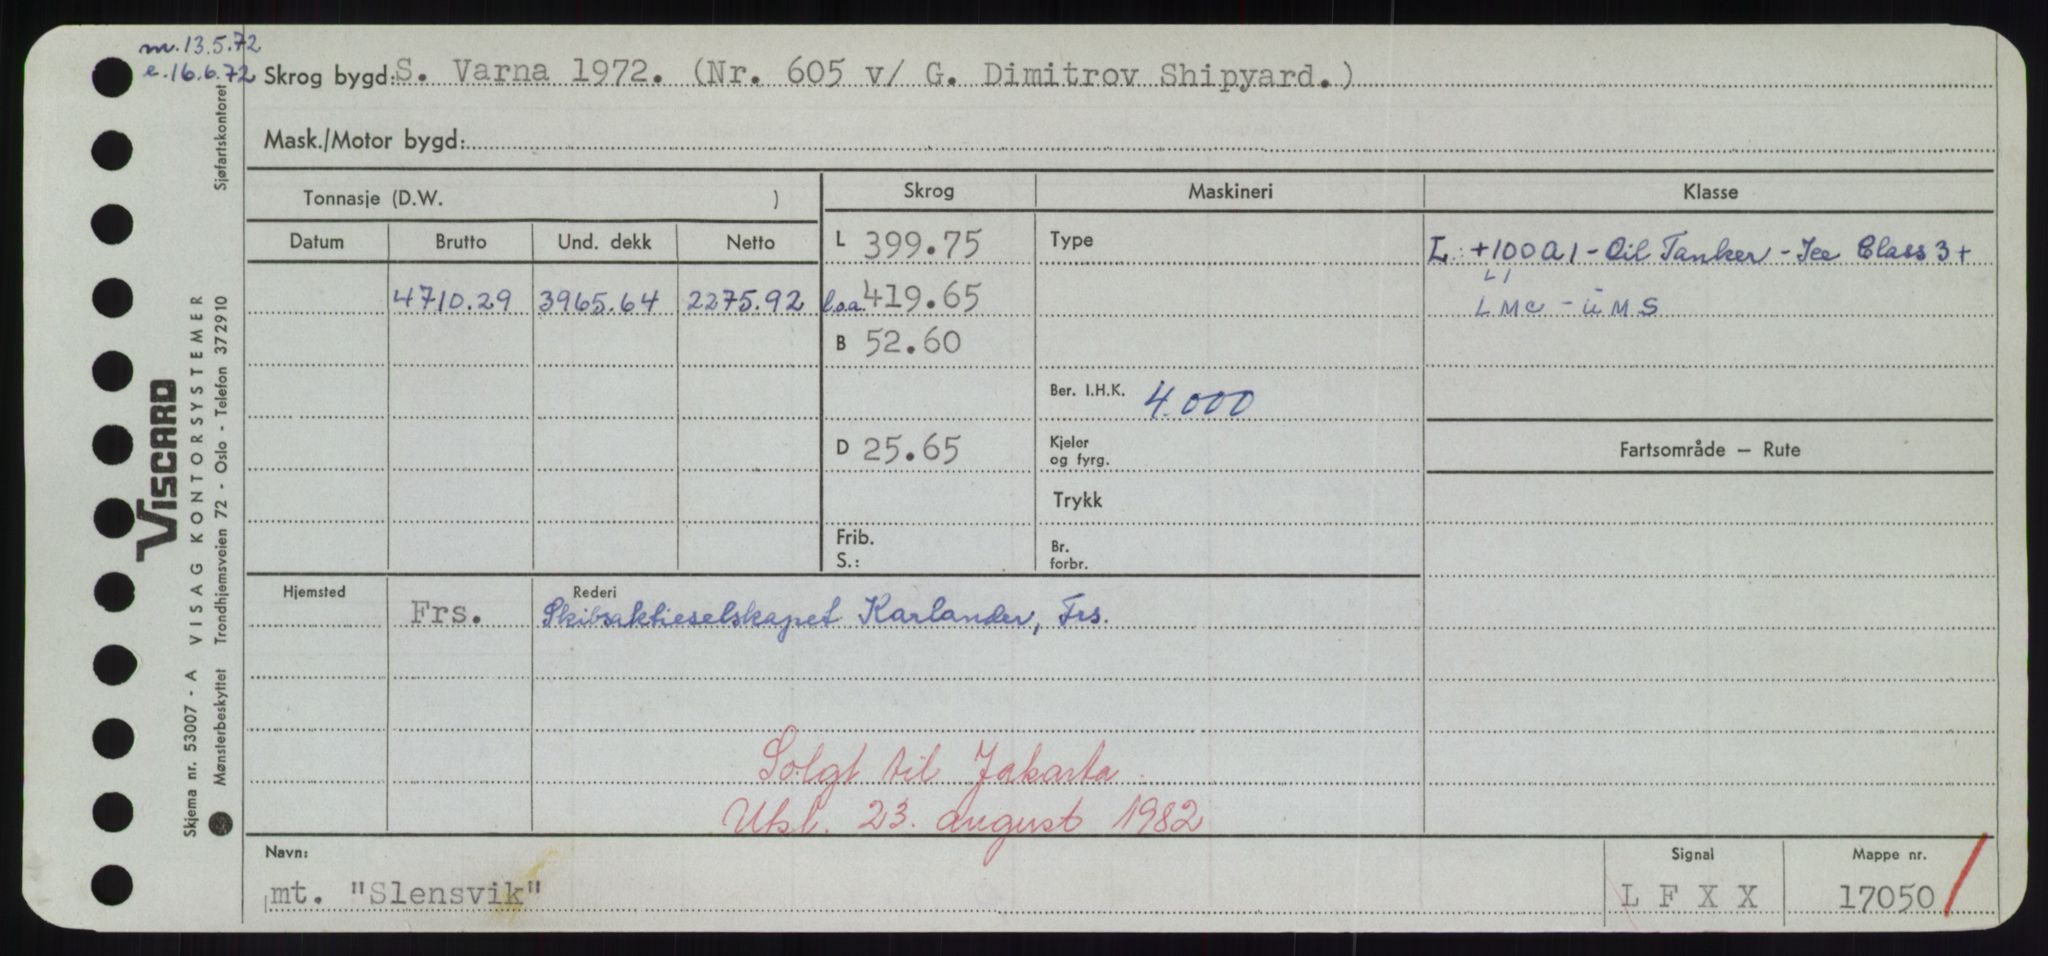 m. 13.5.72
e. 16.6.72
Skrog bygd: S. Varna 1972. (Nr. 605 v/ G. Dimitrov Shipyard.)
Mask./Motor bygd:
Tonnasje (D.W. )
Skrog Maskineri Klasse
Datum Brutto Und. dekk Netto
L 399.75 Type
L. +100A1 - Oil Tanker - Ice Class 3 +
4710.29 3965.64 2275.92 l.o.a. 419.65
LMC - UMS
B 52.60
Ber. I.H.K. 4.000
D 25.65
Kjeler og fyrg.
Fartsområde — Rute
Trykk
Frib.
S.:
Br. forbr.
Hjemsted Rederi
Frs. Skibsaktieselskapet Karlander, Frs.
Solgt til Jakarta.
Utsl. 23. august 1982
Navn: Signal Mappe nr.
mt. "Slensvik" L F X X 17050
Sjøfartskontoret
VISCARD
Skjema nr. 53007 - A VISAG KONTORSYSTEMER
Mønsterbeskyttet Trondhjemsveien 72 - Oslo - Telefon 372910